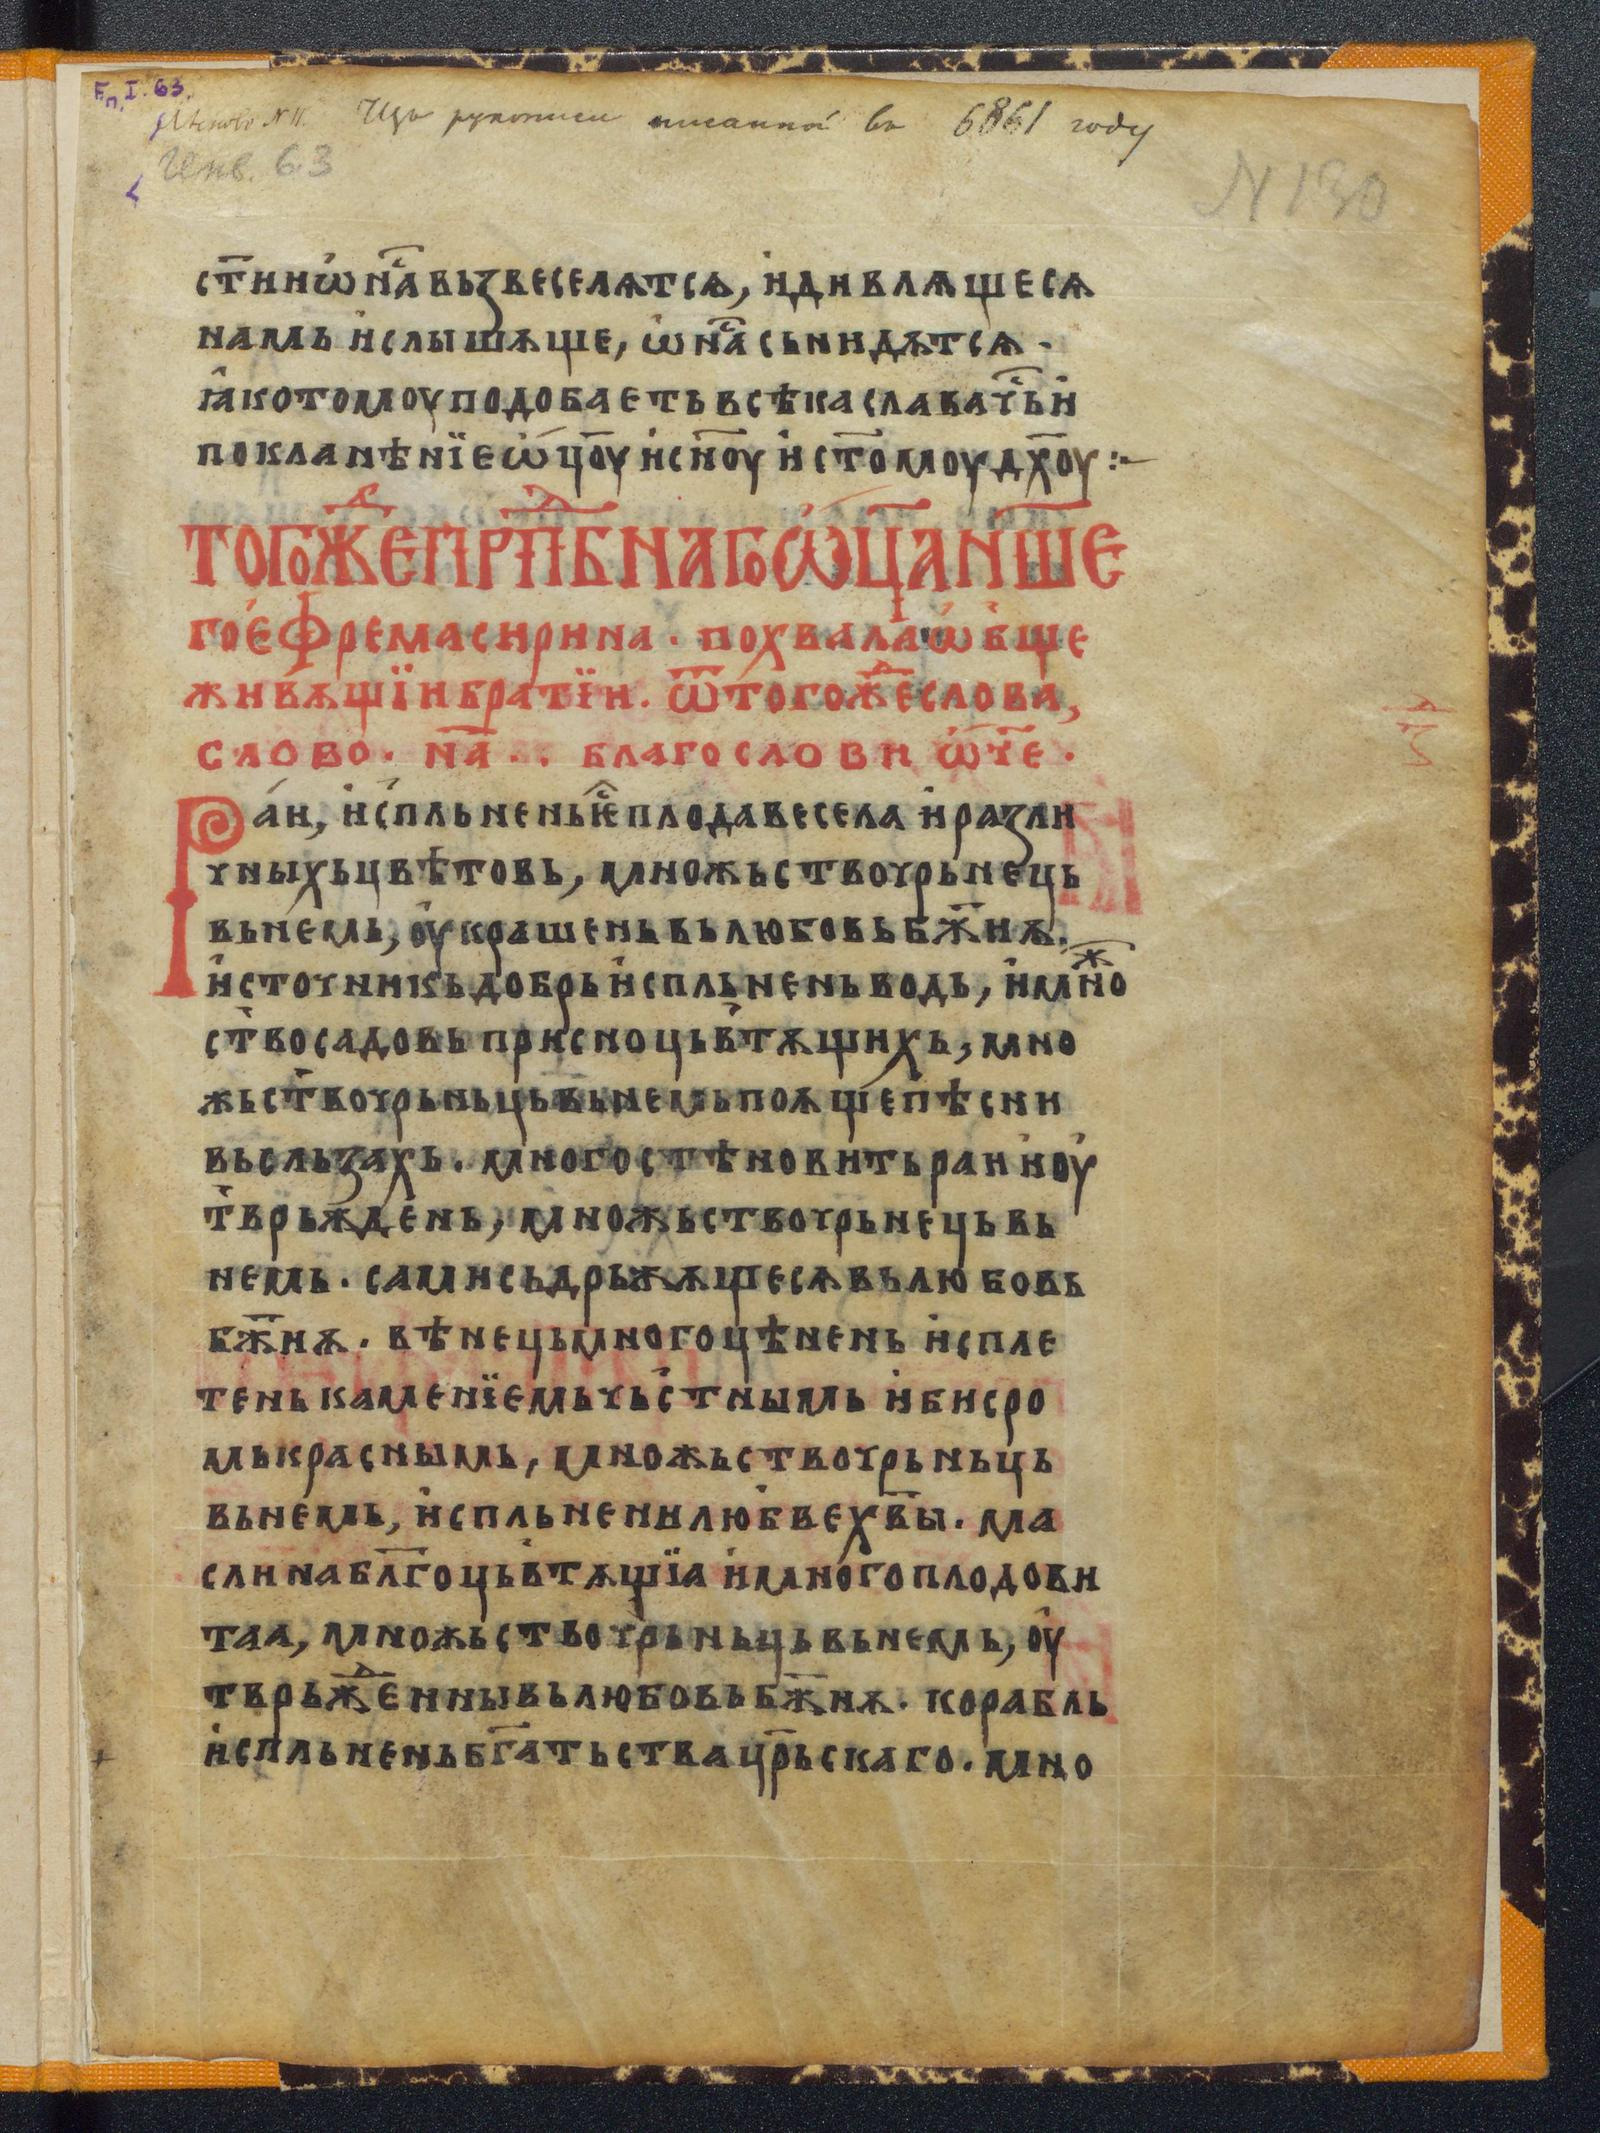 Fп.I.63.
Изъ рукописи писанной въ 6861 году
Инв. 63
N 130
ст҃ниѡ҆на҃ⷭ҇вьꙁвеселѧтсѧ, и҆дивлѧщесѧ
намь и҆слышѫще, ѡ҆на҃ⷭ҇сьнидѫтсѧ.
ꙗ҆котомоуподобаетьвсѣкаславачь҃и҆
покланѣнїеѡ҆ц҃оуи҆сн҃оуи҆ст҃омоудх҃оу:~
Тогожⷣепрⷣпбнагоѡ҆ц҃ан҃ше
гое҆фремасирина. похвалаѡ҆бще
живѫщїибратїи. ѿтогожⷣеслова,
слово. н҃а. . благослови ѡ҆ч҃е.
Раи, и҆спльненьѥⷭ҇плодавесела и҆раꙁли
чныхьцвѣтовь, множьствочрьнець
вьнемь, оу҆крашеньвьлюбовьбж҃иѫ.
и҆сточникьдобрьи҆спльненьводь, и҆мноⷤ
ствосадовьприсноцьвтѫщихь, мно
жьствочрьньцьвьнемьпоѫщепѣсни
вьсльꙁахь. многостѣновитьраи҆и҆оу҆
тврьжденьь, множьствочрьнецьвь
немь. самисьдрьжѫщесѧвьлюбовь
бж҃иѫ. вѣнецьмногоцѣнень и҆спле
тенькаменїемьчьстнымь и҆бисро
мькраснымь, множьствочрьньць
вьнемь, и҆спльненилюбвех҃вы. ма
слинабл҃гоцьвтѫщїа и҆многоплодови
таа, множьствочрьньцьвьнемь, оу҆
тврьжⷣеннывьлюбовьбж҃иѫ. корабль
и҆спльненьбг҃атьствацр҃ьскаго. мно